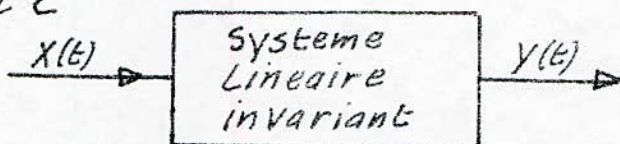 X(t)
Systeme
Lineaire
invariant
Y(t)